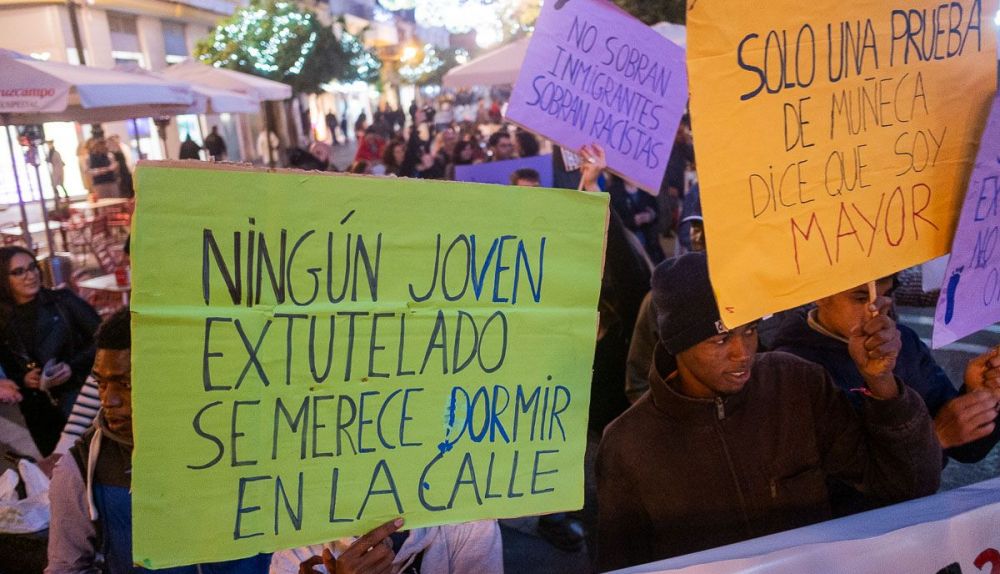 NINGÚN JOVEN
EXTUTELADO
SE MERECE DORMIR
EN LA CALLE
NO SOBRAN
INMIGRANTES
SOBRAN RACISTAS
SOLO UNA PRUEBA
DE MUÑECA
DICE QUE SOY
MAYOR